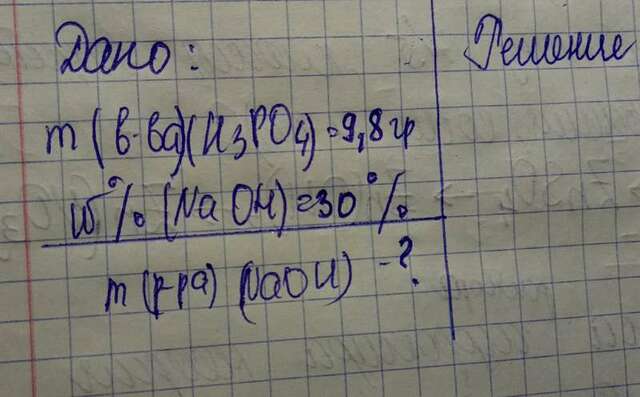 Дано:
Решение
m (в-ва)(H3PO4)=9,8гр
W% (NaOH)=30%
m (р-ра) (NaOH) -?